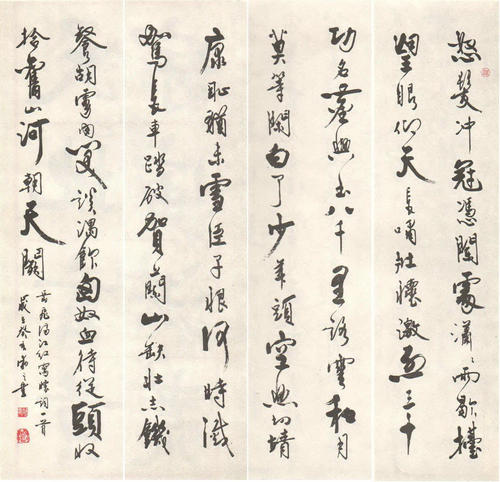 怒髮冲冠憑闌處瀟瀟雨歇擡
望眼仰天長嘯壯懷激烈三十
功名塵與土八千里路雲和月
莫等閑白了少年頭空悲切靖
康恥猶未雪臣子恨何時滅
駕長車踏破賀蘭山缺壯志饑
餐胡虜肉笑談渴飲匈奴血待從頭收
拾舊山河朝天闕
岳飛滿江紅寫懷詞一首